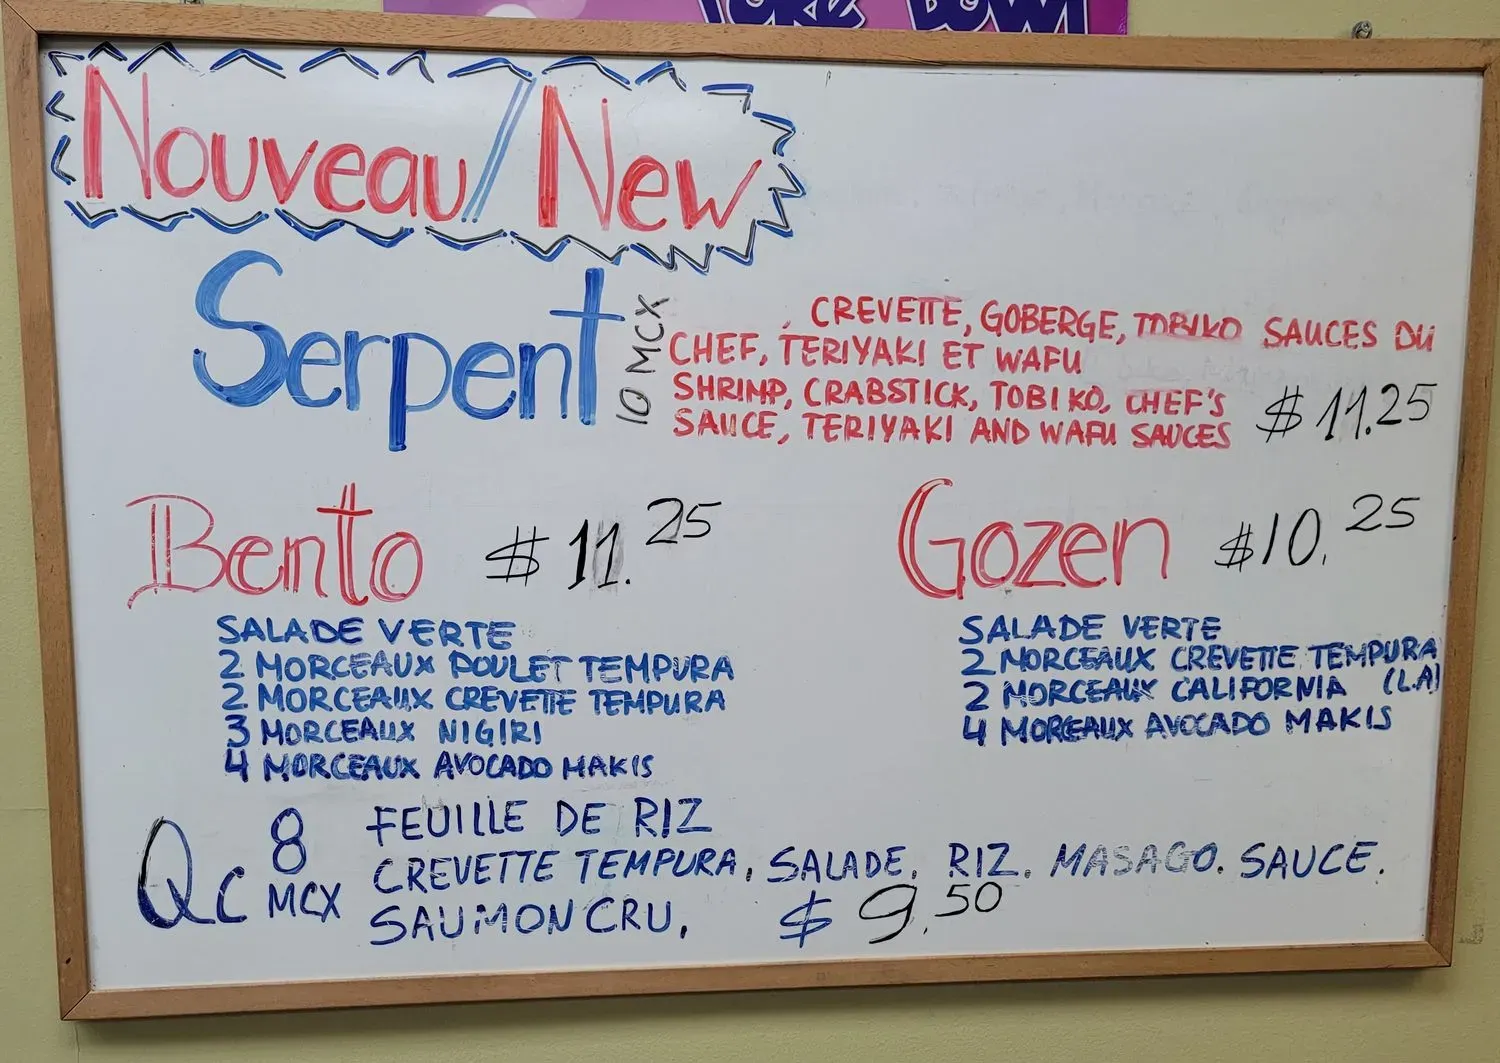 POKE BOWL
Nouveau/New
Serpent
10 MCX
CREVETTE, GOBERGE, TOBIKO SAUCES DU
CHEF, TERIYAKI ET WAFU
SHRIMP, CRABSTICK, TOBIKO, CHEF'S
SAUCE, TERIYAKI AND WAFU SAUCES
$ 11.25
Bento $ 11.25
SALADE VERTE
2 MORCEAUX POULET TEMPURA
2 MORCEAUX CREVETTE TEMPURA
3 MORCEAUX NIGIRI
4 MORCEAUX AVOCADO MAKIS
Gozen $10.25
SALADE VERTE
2 MORCEAUX CREVETTE TEMPURA
2 MORCEAUX CALIFORNIA (L.A)
4 MORCEAUX AVOCADO MAKIS
Qc 8 MCX
FEUILLE DE RIZ
CREVETTE TEMPURA, SALADE. RIZ. MASAGO. SAUCE.
SAUMON CRU, $ 9.50